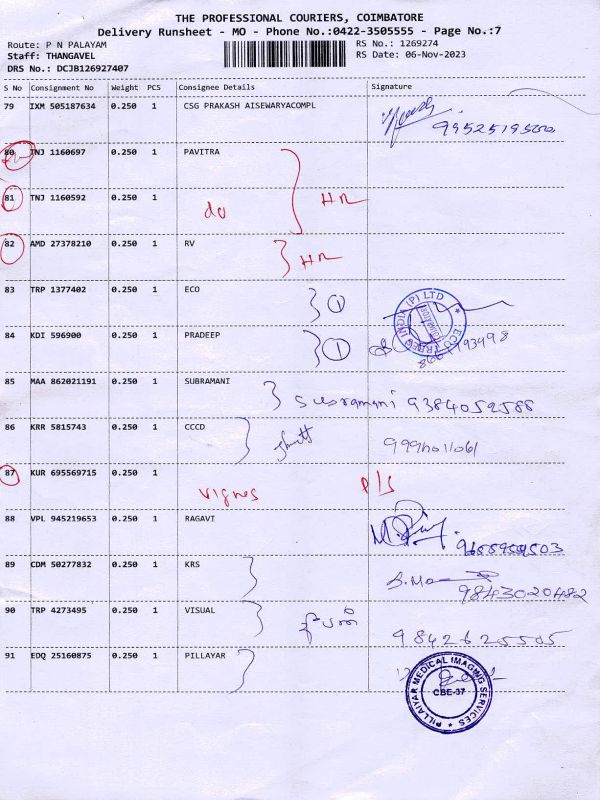 THE PROFESSIONAL COURIERS, COIMBATORE
Delivery Runsheet - MO - Phone No.:0422-3505555 - Page No.:7
Route: P N PALAYAM RS No.: 1269274
Staff: THANGAVEL RS Date: 06-Nov-2023
DRS No.: DCJB126927407
S No Consignment No Weight PCS Consignee Details Signature
79 IXM 505187634 0.250 1 CSG PRAKASH AISEWARYACOMPL
80 TNJ 1160697 0.250 1 PAVITRA
81 TNJ 1160592 0.250 1 do HR
82 AMD 27378210 0.250 1 RV HR
83 TRP 1377402 0.250 1 ECO 1
84 KDI 596900 0.250 1 PRADEEP 1
85 MAA 862021191 0.250 1 SUBRAMANI Subramani 9384052588
86 KRR 5815743 0.250 1 CCCD
87 KUR 695569715 0.250 1 vignes P/S
88 VPL 945219653 0.250 1 RAGAVI
89 CDM 50277832 0.250 1 KRS 9843020482
90 TRP 4273495 0.250 1 VISUAL 9842625505
91 EDQ 25160875 0.250 1 PILLAYAR
PILLAIYAR MEDICAL IMAGING SERVICES
CBE-37